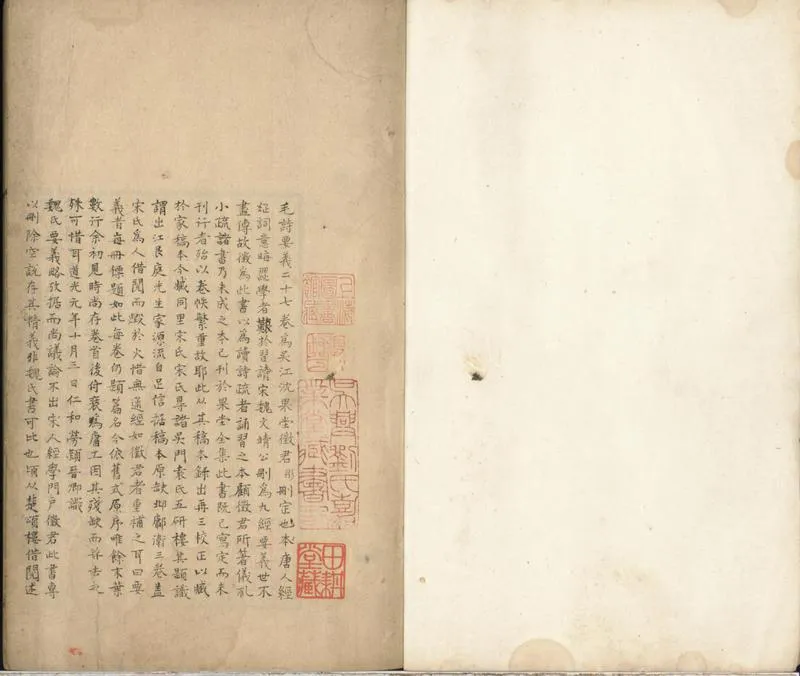 毛詩要義二十七卷為吳江沈果堂徵君彤刪定也本唐人經
疏詞意晦澀學者艱於習讀宋魏文靖公刪為九經要義世不
盡傳故徵為此書以為讀詩疏者誦習之本顧徵君所著儀禮
小疏諸書乃未成之本已刊於果堂全集此書既已寫定而未
刊行者殆以卷帙繁重故耶此从其稿本錄出再三校正以臧
於家稿本今臧同里宋氏宋氏得諸吳門袁氏五研樓其題識
謂出江艮庭先生家源流自足信據稿本原缺邶鄘衛三卷蓋
宋氏為人借閱而燬於火惜無通經如徵君者重補之耳曰要
義者每冊標題如此每卷仍題篇名今依舊式原序唯餘末葉
數行余初見時尚存卷首後付裝為庸工因其殘缺而并去之
殊可惜耳道光元年十月三日仁和勞晉卿識
魏氏要義略攷据而尚議論不出宋人經學門戶徵君此書專
以刪除空說存其精義非魏氏書可比也頃从楚頌樓借閱述
吳興劉氏嘉
業堂藏書印
田耕
堂藏